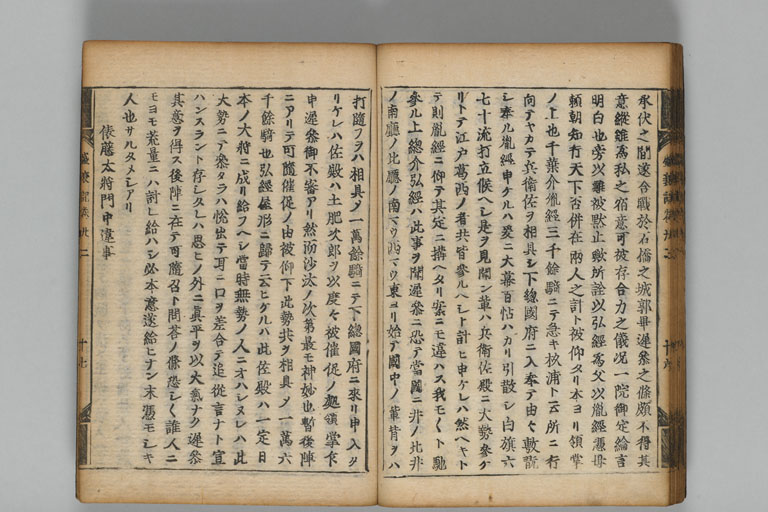 承伏之間遂合戰於石橋之城郭畢遲參之條頗不得其
意縱雖為私之宿意可被存合力之儀況一院御定綸言
明白也旁以難被黙止歟所詮以弘經為父以胤經憑母
頼朝知行天下否併在兩人之計ト被仰タリ本ヨリ領掌
ノ上也千葉介胤經三千餘騎ニテ急キ松浦ト云所ニ行
向テヤカテ兵衛佐ヲ相具シ下總國府ニ入奉テ由々敷
シ奉ル胤經申ケルハ爰ニ大幕百帖ハカリ引散シ白旗六
七十流打立候ヘシ是ヲ見聞ン輩ハ兵衛佐殿ニ大勢參グ
リトテ江戸葛西ノ者共皆參ルヘシト計ヒ申ケレハ然ヘキト
テ則胤經ニ仰テ其定ニ構ヘタリ案ニモ違ハス我モ〱ト馳
參ル上總介弘經ハ此事ヲ聞遲參ニ恐テ當國ニ
ノ南廳ノ北廳ノ南マウ西マウ東ヨリ始テ國中ノ輩背ヲハ
打隨フヲハ相具メ一萬餘騎ニテ下總國府ニ來リ申入タ
リケレハ佐殿ハ土肥次郎ヲ以度々被催促ノ處領掌乍
申遲參御不審アリ然而沙汰ノ次第最モ神妙也暫後陣
ニアリテ可隨催促ノ由被仰下此勢共ヲ相具メ一萬六
千餘騎也弘經屋形ニ歸テ云ヒケルハ此佐殿ハ一定日
本ノ大將ニ成リ給フヘシ當時無勢ノ人ニオハレヌレハ此
大勢ニテ參タラハ悦出テ耳ニ口ヲ差合テ追從言ナト宣
ハンスラント存シタレハ思ヒノ外ニ真平ヲ以大氣ナク遲參
其意ヲ得ス後陣ニ在テ可隨召ト問答ノ條恐シク誰人ニ
モヨモ荒量ニハ計レ給ハシ必本意遂給ヒナン末憑モシキ
人也サルタメシアリ
俵藤太將門中違事